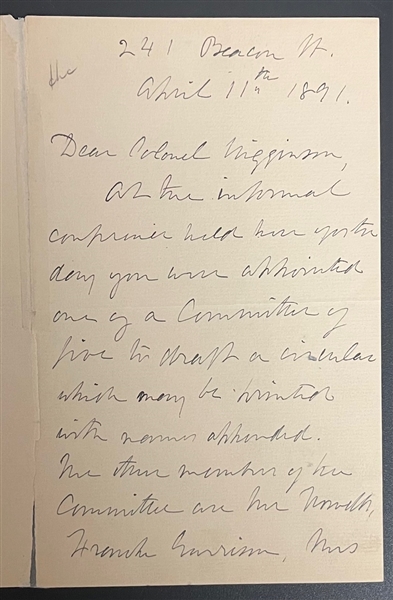 241 Beacon St.
April 11th 1891.
Dear Colonel Higginson,
At the informal
conference held here yester
day you were appointed
one of a Committee of
five to draft a circular
which may be printed
with names appended.
The other members of the
Committee are
Garrison, Mrs